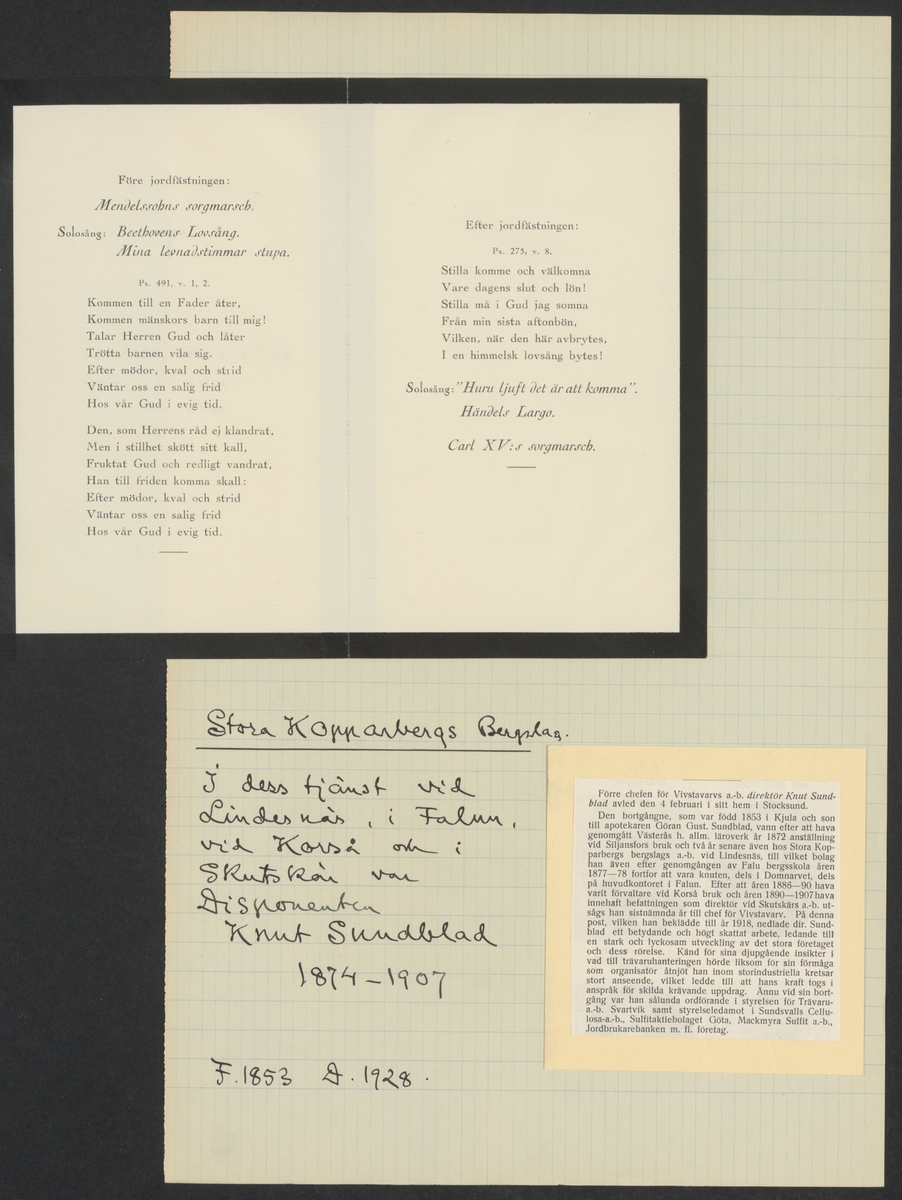 Före jordfästningen:
Mendelssohns sorgmarsch.
Solosång: Beethovens Lovsång.
Mina levnadstimmar stupa.
Ps. 491, v. 1, 2.
Kommen till en Fader åter,
Kommen mänskors barn till mig!
Talar Herren Gud och låter
Trötta barnen vila sig.
Efter mödor, kval och strid
Väntar oss en salig frid
Hos vår Gud i evig tid.
Den, som Herrens råd ej klandrat,
Men i stillhet skött sitt kall,
Fruktat Gud och redligt vandrat,
Han till friden komma skall:
Efter mödor, kval och strid
Väntar oss en salig frid
Hos vår Gud i evig tid.
Efter jordfästningen:
Ps. 275, v. 8.
Stilla komme och välkomna
Vare dagens slut och lön!
Stilla må i Gud jag somna
Från min sista aftonbön,
Vilken, när den här avbrytes,
I en himmelsk lovsång bytes!
Solosång: "Huru ljuft det är att komma".
Händels Largo.
Carl XV:s sorgmarsch.
Stora Kopparbergs Bergslag.
I dess tjänst vid
Lindesnäs, i Falun,
vid Korså och i
Skutskär var
Disponenten
Knut Sundblad
1874-1907
F. 1853 D. 1928.
Förre chefen för Vivstavarvs a.-b. direktör Knut Sund-
blad avled den 4 februari i sitt hem i Stocksund.
Den bortgångne, som var född 1853 i Kjula och son
till apotekaren Göran Gust. Sundblad, vann efter att hava
genomgått Västerås h. allm. läroverk år 1872 anställning
vid Siljansfors bruk och två år senare även hos Stora Kop-
parbergs bergslags a.-b. vid Lindesnäs, till vilket bolag
han även efter genomgången av Falu bergsskola åren
1877—78 fortfor att vara knuten, dels i Domnarvet, dels
på huvudkontoret i Falun. Efter att åren 1886—90 hava
varit förvaltare vid Korså bruk och åren 1890—1907 hava
innehaft befattningen som direktör vid Skutskärs a.-b. ut-
sågs han sistnämnda år till chef för Vivstavarv. På denna
post, vilken han beklädde till år 1918, nedlade dir. Sund-
blad ett betydande och högt skattat arbete, ledande till
en stark och lyckosam utveckling av det stora företaget
och dess rörelse. Känd för sina djupgående insikter i
vad till trävaruhanteringen hörde liksom för sin förmåga
som organisatör åtnjöt han inom storindustriella kretsar
stort anseende, vilket ledde till att hans kraft togs i
anspråk för skilda krävande uppdrag. Ännu vid sin bort-
gång var han sålunda ordförande i styrelsen för Trävaru-
a.-b. Svartvik samt styrelseledamot i Sundsvalls Cellu-
losa-a.-b., Sulfitaktiebolaget Göta, Mackmyra Sulfit a.-b.,
Jordbrukarebanken m. fl. företag.